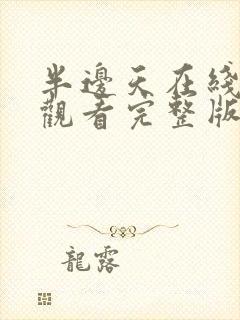 半邊天在綫
觀看完整版
龍露